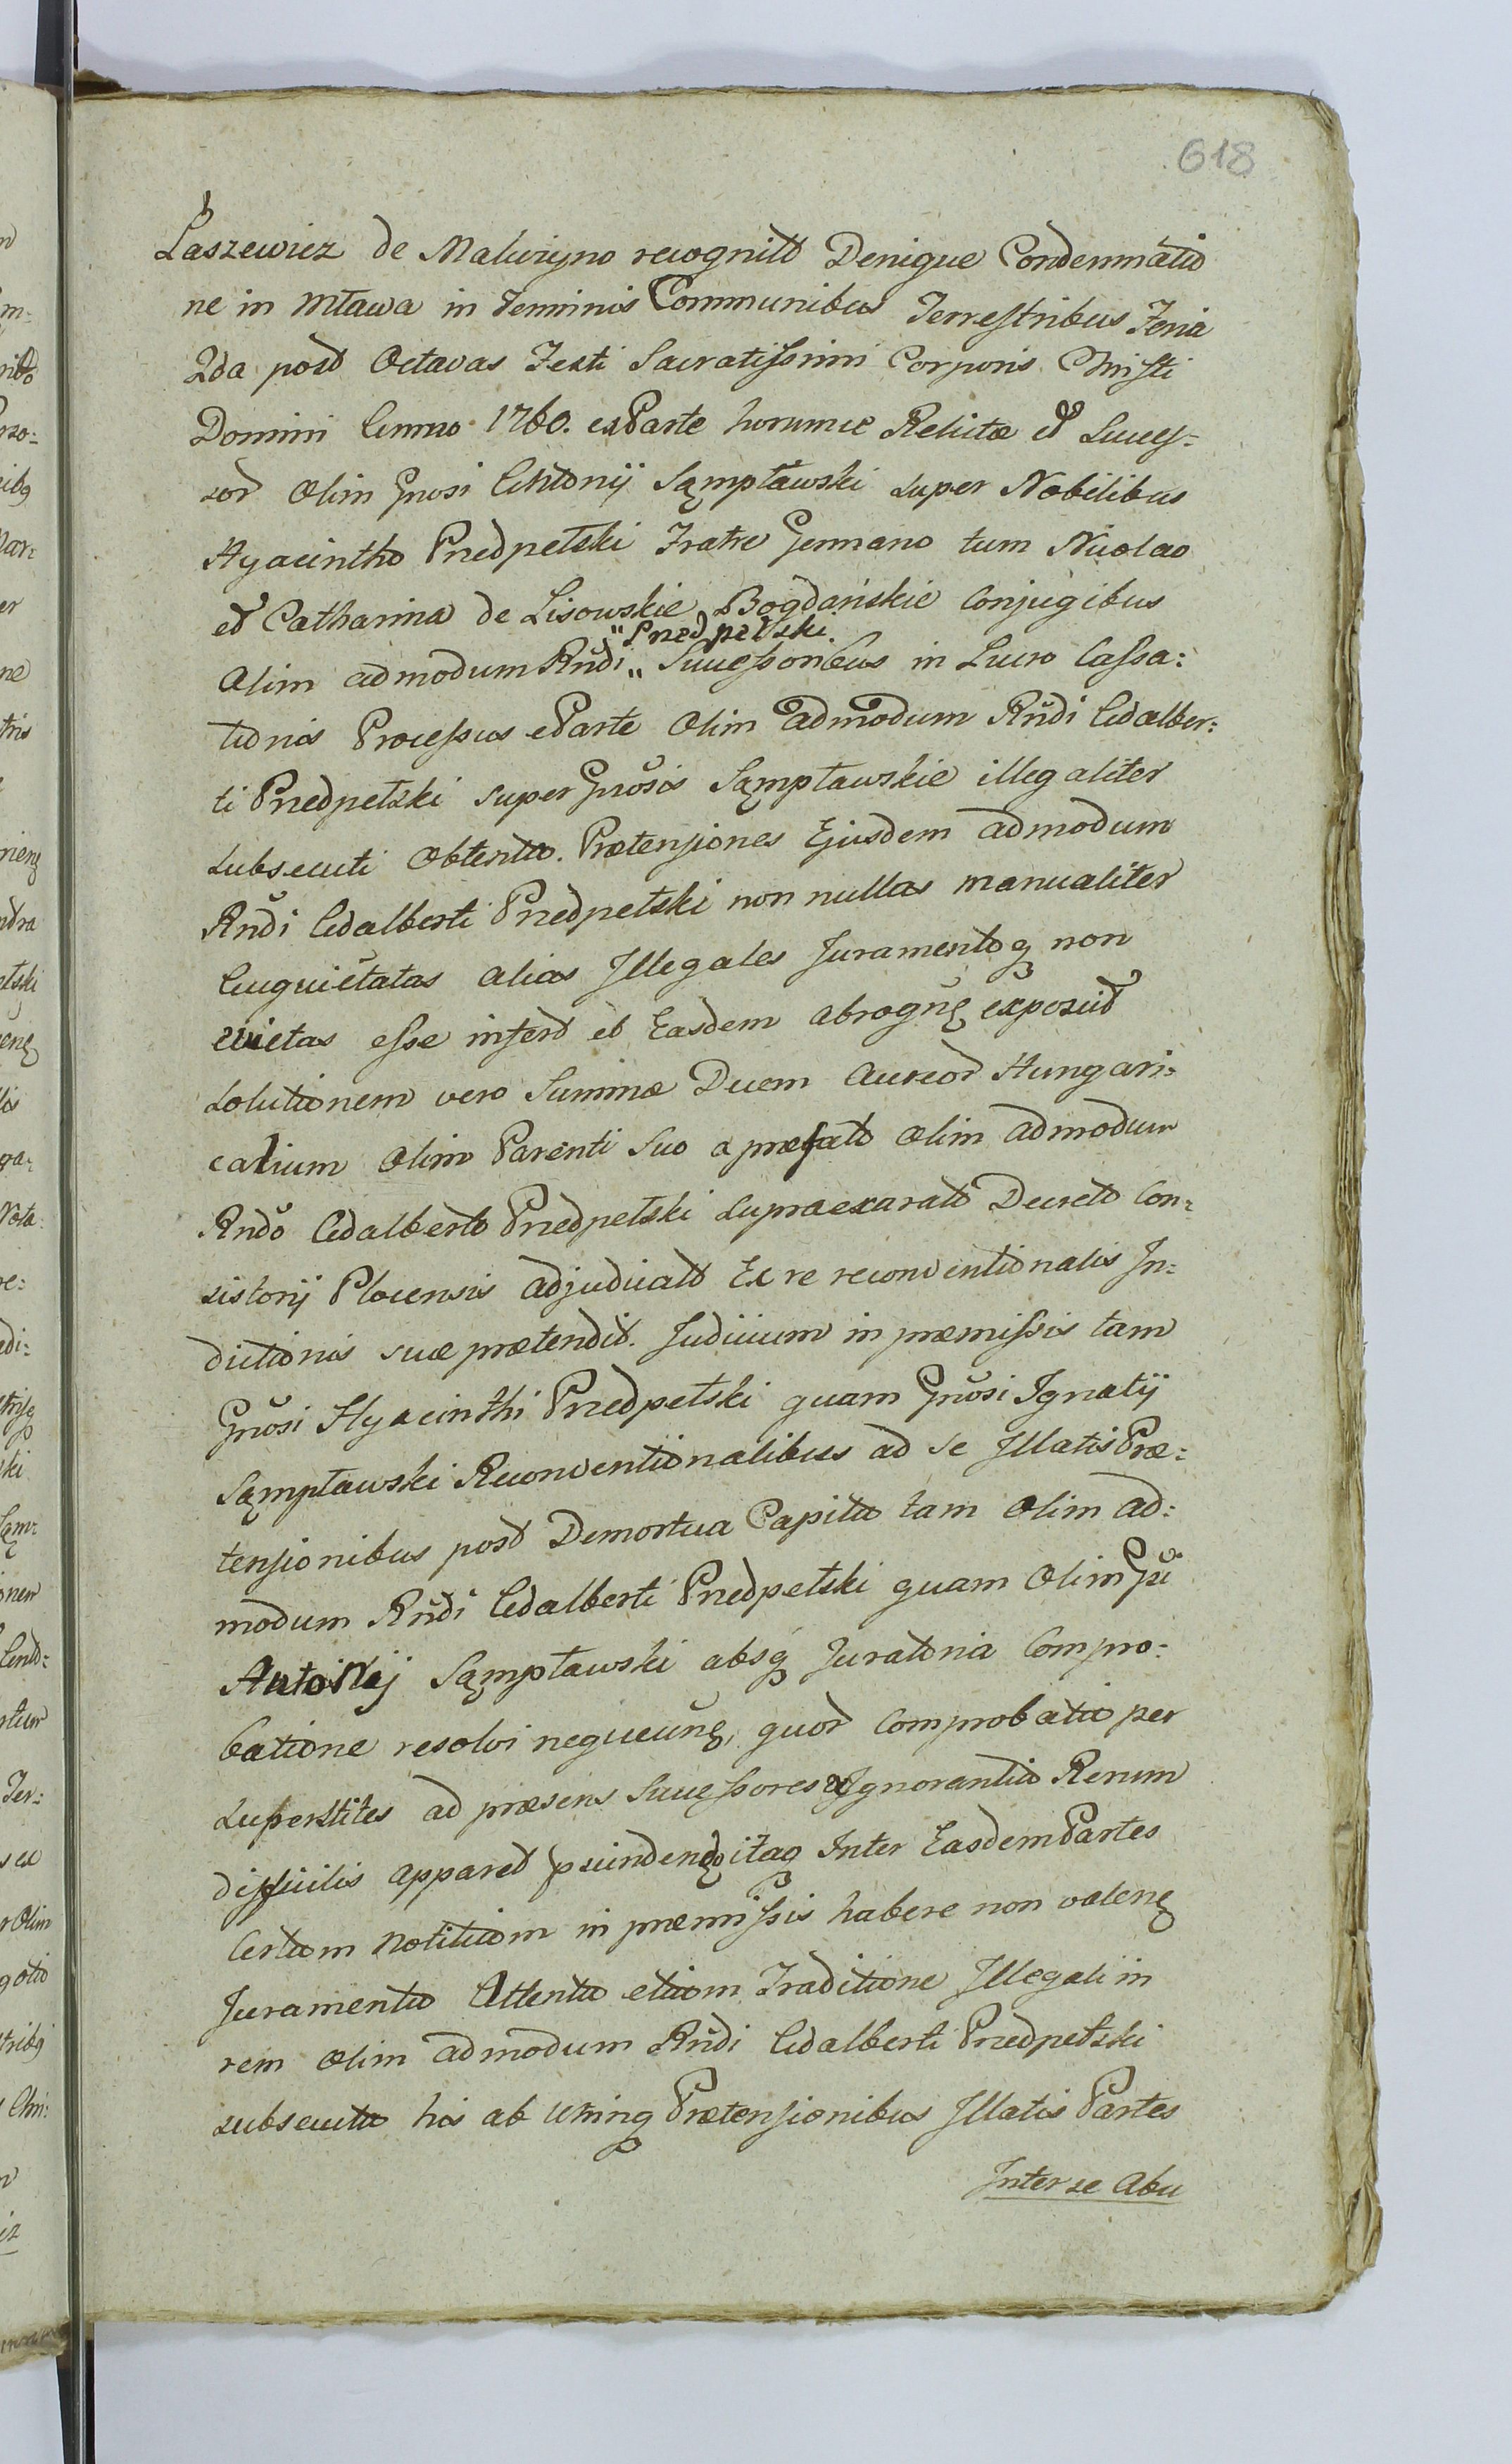 618
Łaszewicz de Maluzyno recognitt Denique Condemnatio
ne in Mława in Terminis Communibus Terrestribus Feria
2da post Octavas Festi Sacratissimi Corporis Christi
Domini Anno 1760. ex Parte horumce Relictæ et Succes=
sor Olim Gnosi Antonij Sąmpławski super Nobilibus
Hyacintho Przedpełski Fratre Germano tum Nicolao
et Catharina de Lisowskie Bogdańskie Conjugibus
"Przedpełski.
Olim admodum Rndi " Successoribus in Lucro Cassa=
tionis Processus e Parte Olim admodum Rndi Adalber=
ti Przedpełski super Gnosis Sąmpławskie illegaliter
subsecuti Obtenta. Prætensiones Ejusdem admodum
Rndi Adalberti Przedpełski non nullas manualiter
Acquietatas alias Illegales Juramentoq non
evictas esse infert et Easdem abrogñę exposcit
solutionem vero Summæ Decem Aureor Hungari=
calium Olim Parenti Suo a præfato Olim admodum
Rndo Adalberto Przedpełski supraexarato Decreto Con=
sistorij Plocensis adjudicato Ex re reconventionalis In=
dictionis suæ prætendit. Judicium in præmissis tam
Gnosi Hyacinthi Przedpełski quam Gnosi Ignatij
Sąmpławski Reconventionalibus ad se Illatis Præ=
tensionibus post Demortua Capita tam Olim ad=
modum Rndi Adalberti Przedpełski quam Olim Gsi
Antonij Sąmpławski absq Juratoria Compro=
batione resolvi nequeunę, quod Comprobatio per
superstites ad præsens Successores ex Ignorantia Rerum
difficilis apparet itaq Inter Easdem Partes
Certam Notitiam in præmissis habere non valenę
Juramento Attenta etiam Traditione Illegali in
rem Olim admodum Rndi Adalberti Przedpełski
subsecuta his ab utrinq Prætensionibus Illatis Partes
Inter se Abu